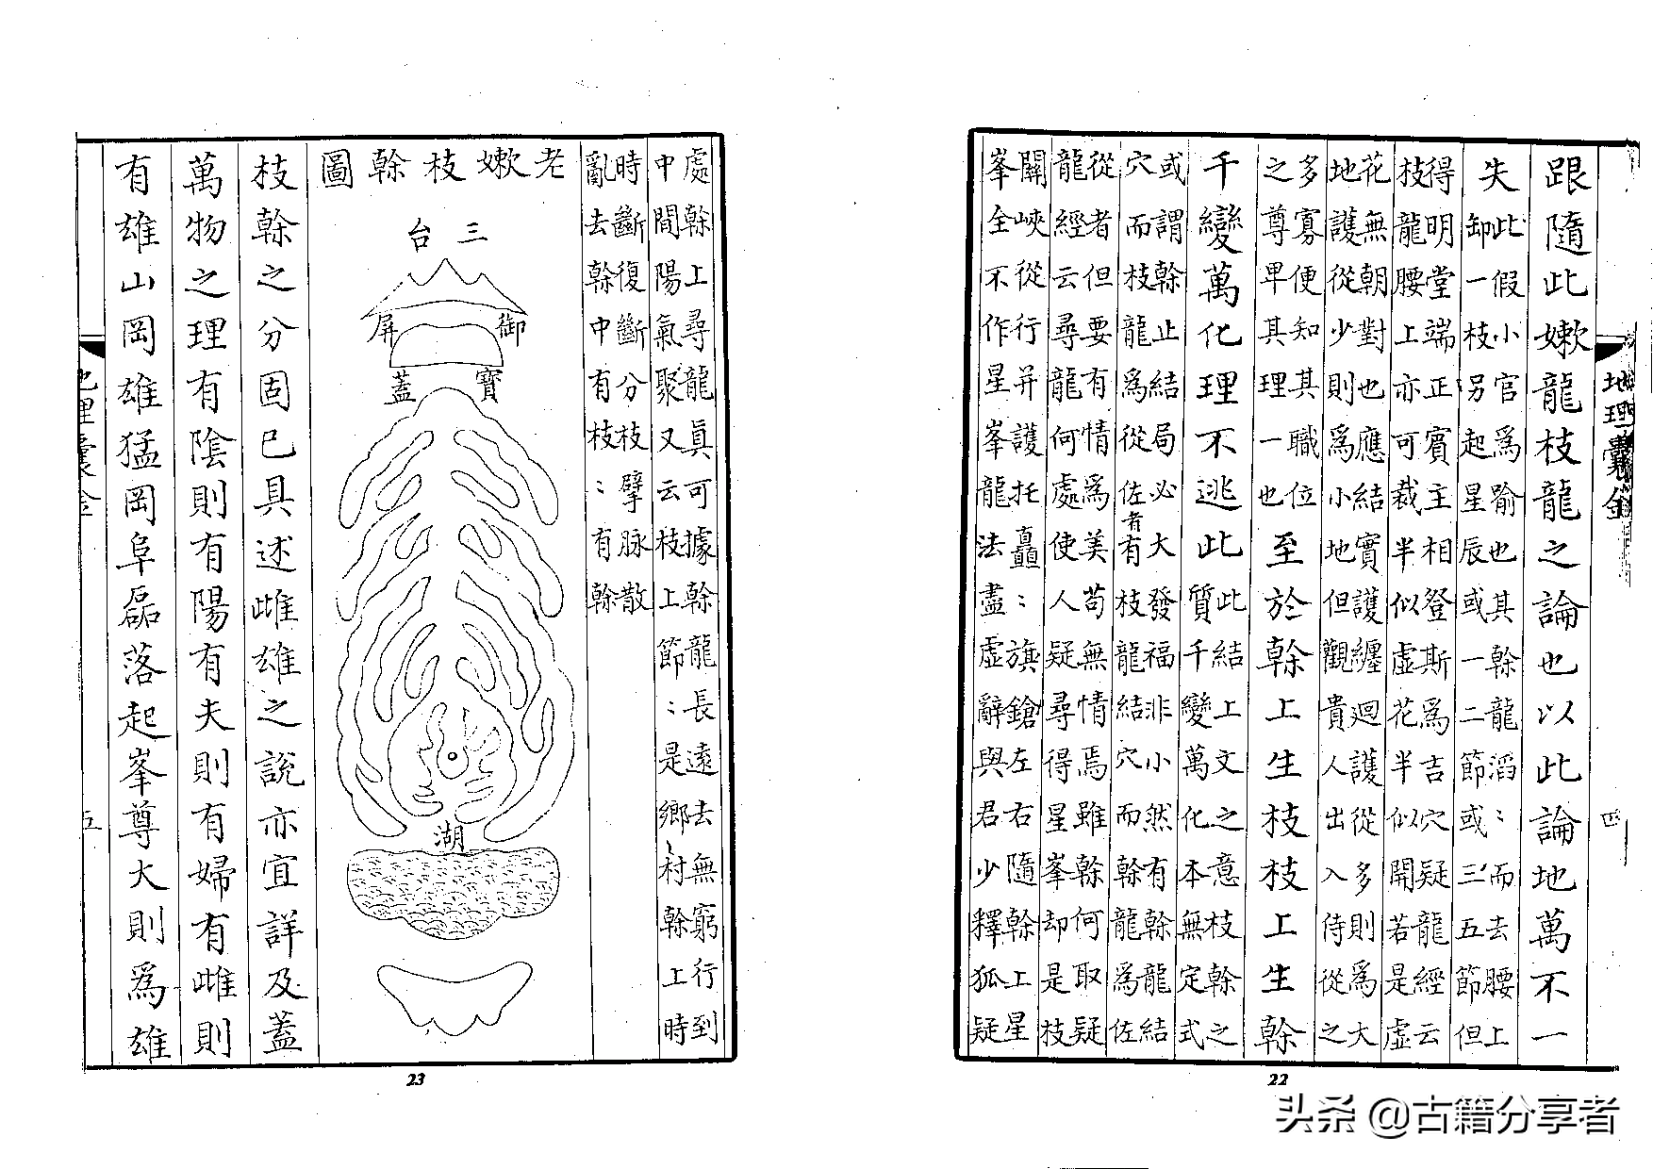 地理囊金
四
跟隨此嫰龍枝龍之論也以此論地萬不一
失
此假小官爲踰也其榦龍滔〻而去腰上
卸一枝另起星辰或一二節或三五節但
得明堂端正賓主相登斯爲吉穴疑龍經云
枝龍腰上亦可裁半似虛花半似開若是虛
花無朝對也應結實護纏迴護從多則爲大
地護從少則爲小地但觀貴人出入侍從之
多寡便知其職位
之尊卑其理一也
至於榦上生枝枝上生榦
千變萬化理不逃此
此結上文之意枝榦之
質千變萬化本無定式
或謂榦止結局必大發福非小然有榦龍結
穴而枝龍爲從佐者有枝龍結穴而榦龍爲佐
從者但要有情爲美苟無情焉雖榦何取疑
龍經云尋龍何處使人疑尋得星峯却是枝
關峽從行并護托矗〻旗鎗左右隨榦上星
峯全不作星峯龍法盡虛辭與君少釋狐疑
22
處榦上尋龍眞可據榦龍長遠去無窮行到
中間陽氣聚又云枝上節〻是鄉村榦上時
時斷復斷分枝擘脉散
亂去榦中有枝〻有榦
老嫰枝榦圖
三台
御屏
寶蓋
湖
枝榦之分固已具述雌雄之説亦宜詳及蓋
萬物之理有陰則有陽有夫則有婦有雌則
有雄山岡雄猛岡阜磊落起峯尊大則爲雄
地理囊金
五
23
头条 @古籍分享者